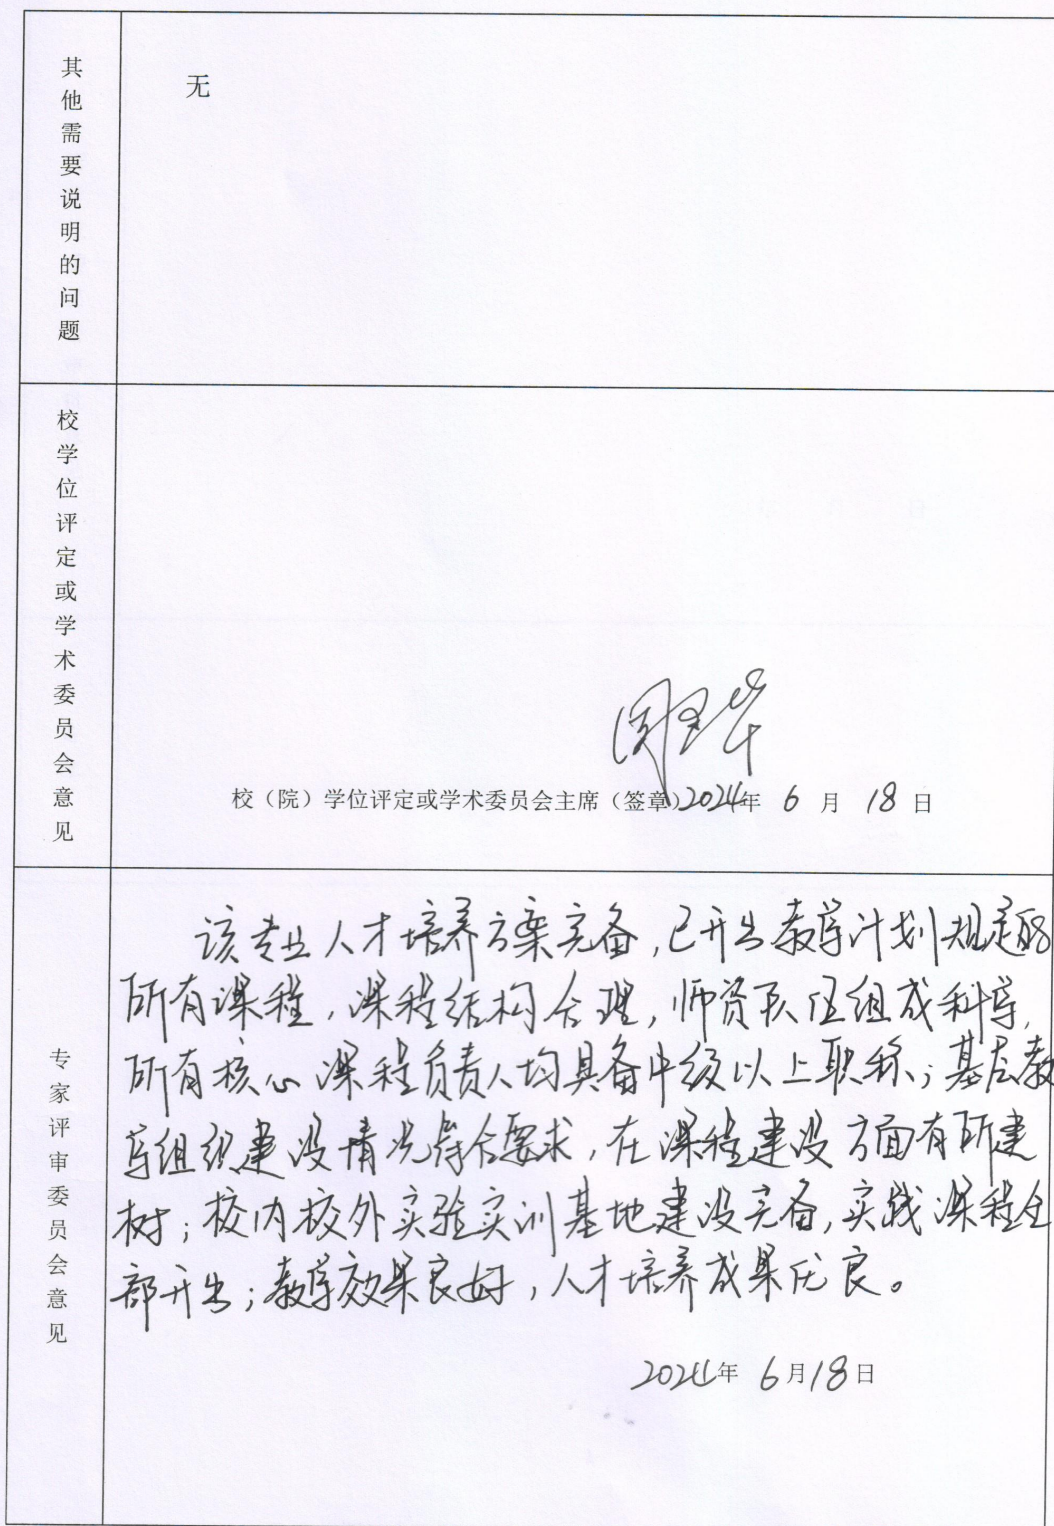 其他需要说明的问题
无
校学位评定或学术委员会意见
校（院）学位评定或学术委员会主席（签章）2024年 6 月 18 日
专家评审委员会意见
该专业人才培养方案完备，已开出教学计划规定的
所有课程，课程结构合理，师资队伍组成科学，
所有核心课程负责人均具备中级以上职称；基层教
学组织建设情况符合要求，在课程建设方面有所建
树；校内校外实验实训基地建设完备，实践课程全
部开出；教学效果良好，人才培养成果优良。
2024年 6月18日